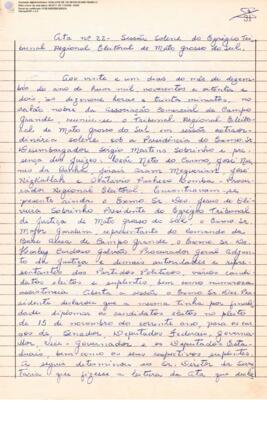 Ata nº 22 - Sessão Solene do Egrégio Tri-
bunal Regional Eleitoral de Mato Grosso do Sul.
Aos vinte e um dias do mês de dezem-
bro do ano de hum mil, novecentos e oitenta e
dois às dezenove horas e trinta minutos, no
salão nobre da Associação Comercial de Campo
Grande, reuniu-se o Tribunal Regional Eleito-
ral de Mato Grosso do Sul em sessão extraor-
dinária solene sob a Presidência do Exmo Sr
Desembargador Sérgio Martins Sobrinho e pre-
sença dos Juízes: Leão Neto do Carmo, José Nu-
nes da Cunha, Jesus
José
rador Regional Eleitoral. Encontravam-se
presente ainda: o Exmo Sr Des. Jesus de Oli-
veira Sobrinho Presidente do Egrégio Tribunal
de Justiça de Mato Grosso do Sul, o Exmo Sr
Major representante do Comando da
Base Aérea de Campo Grande, o Exmo Sr
Cardoso Procurador Geral Adjun-
to da Justiça e demais autoridades e repre-
sentantes dos Partidos Políticos, vários candi-
datos eleitos e suplentes, bem como numerosa
assistência. Aberta a sessão o Exmo Sr Des Pre-
sidente declarou que a mesma tinha por finali-
dade diplomar os candidatos eleitos no pleito
de 15 de novembro do corrente ano, para os car-
gos de, Senador, Deputados Federais, Governa-
dor, Vice-Governador e os Deputados Esta-
duais, bem como os seus respectivos suplentes.
A seguir determinou ao Sr Diretor da Secre-
taria que fizesse a leitura da Ata que